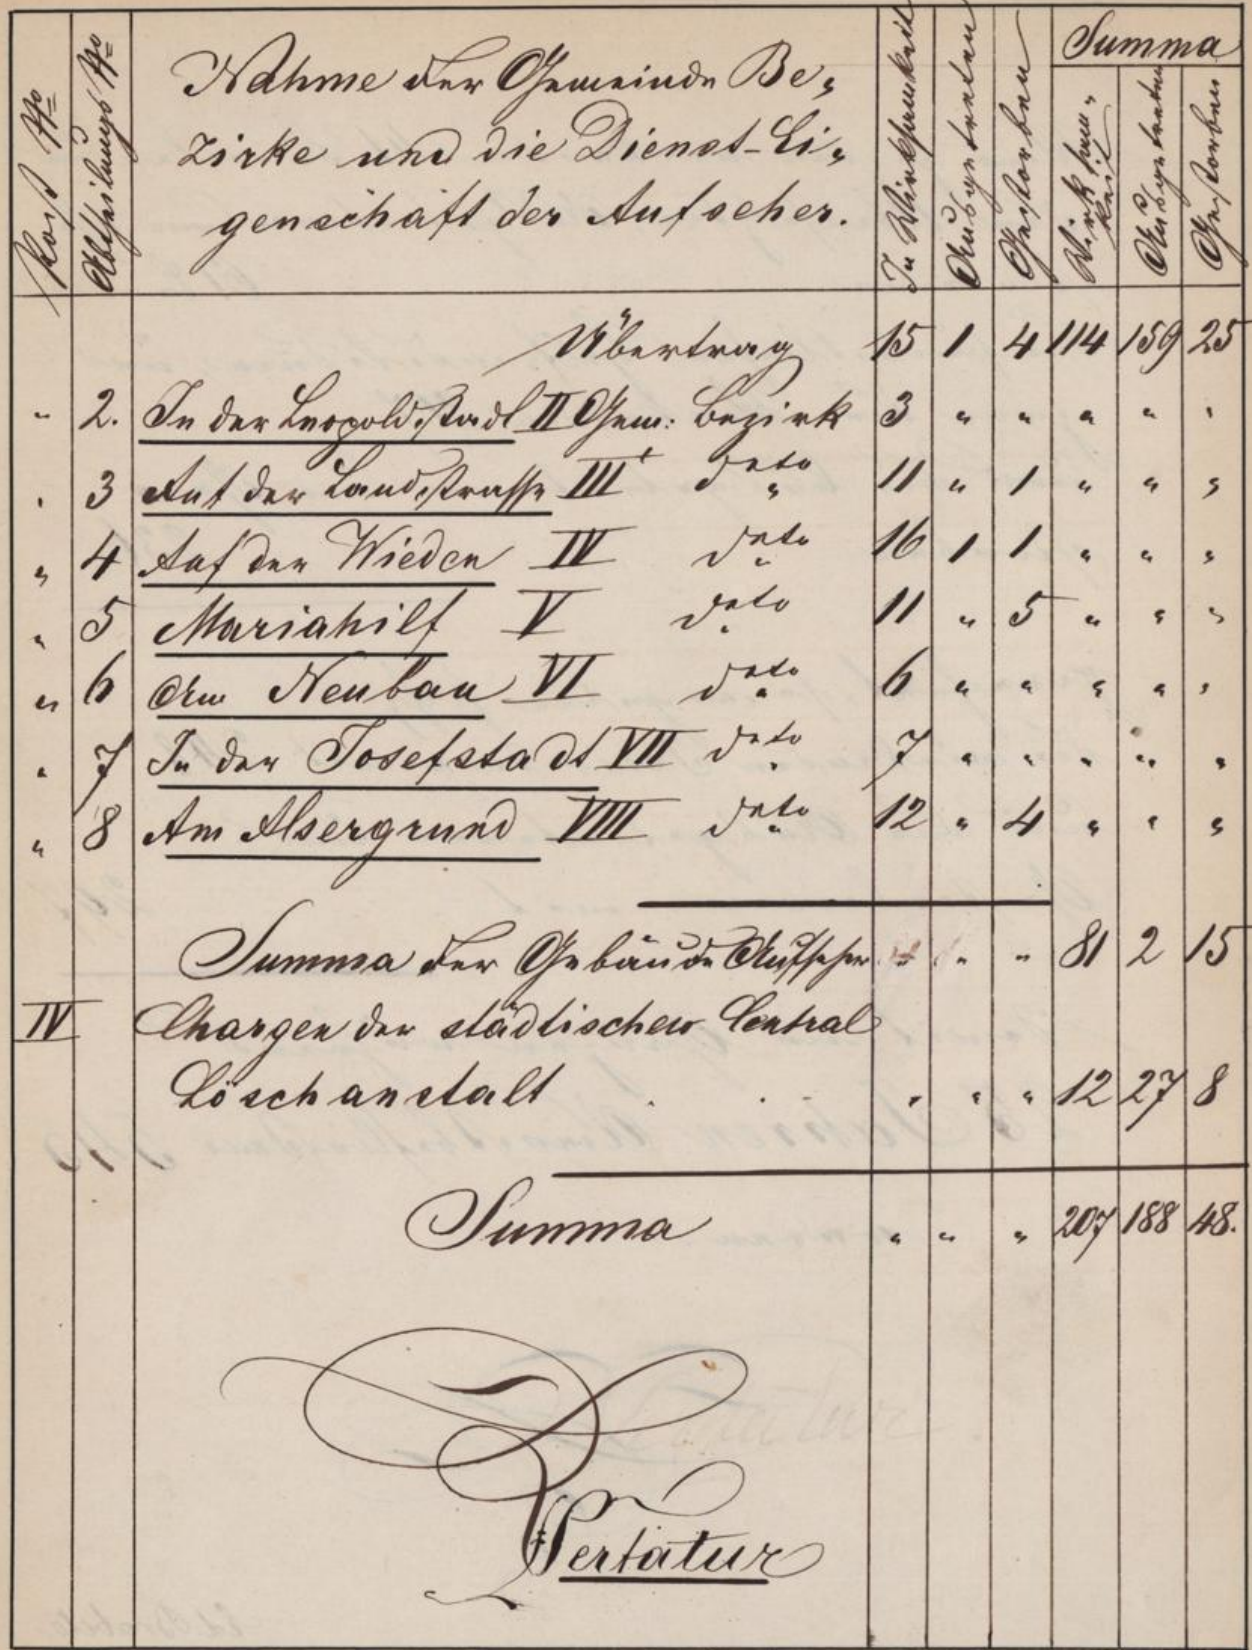 Post No
Abtheilungs No
Nahme der Gemeinde Be,
zirke und die Dienst-Ei,
genschaft der Aufseher.
In Wirksamkeit
Ausgetreten
Gestorben
Summa
Wirksam,
keit
Ausgetreten
Gestorben
Übertrag 15 1 4 114 159 25
" 2. In der Leopoldstadt II Gem: Bezirk 3 " " " " "
" 3 Auf der Landstrasse III dato 11 " 1 " " "
" 4 Auf der Wieden IV dato 16 1 1 " " "
" 5 Mariahilf V dato 11 " 5 " " "
" 6 Am Neubau VI dato 6 " " " " "
" 7 In der Josefstadt VII dato 7 " " " " "
" 8 Am Alsergrund VIII dato 12 " 4 " " "
Summa der Gebäude Aufseher " " " 81 2 15
IV Chargen der städtischen Central
Löschanstalt . . " " " 12 27 8
Summa " " " 207 188 48.